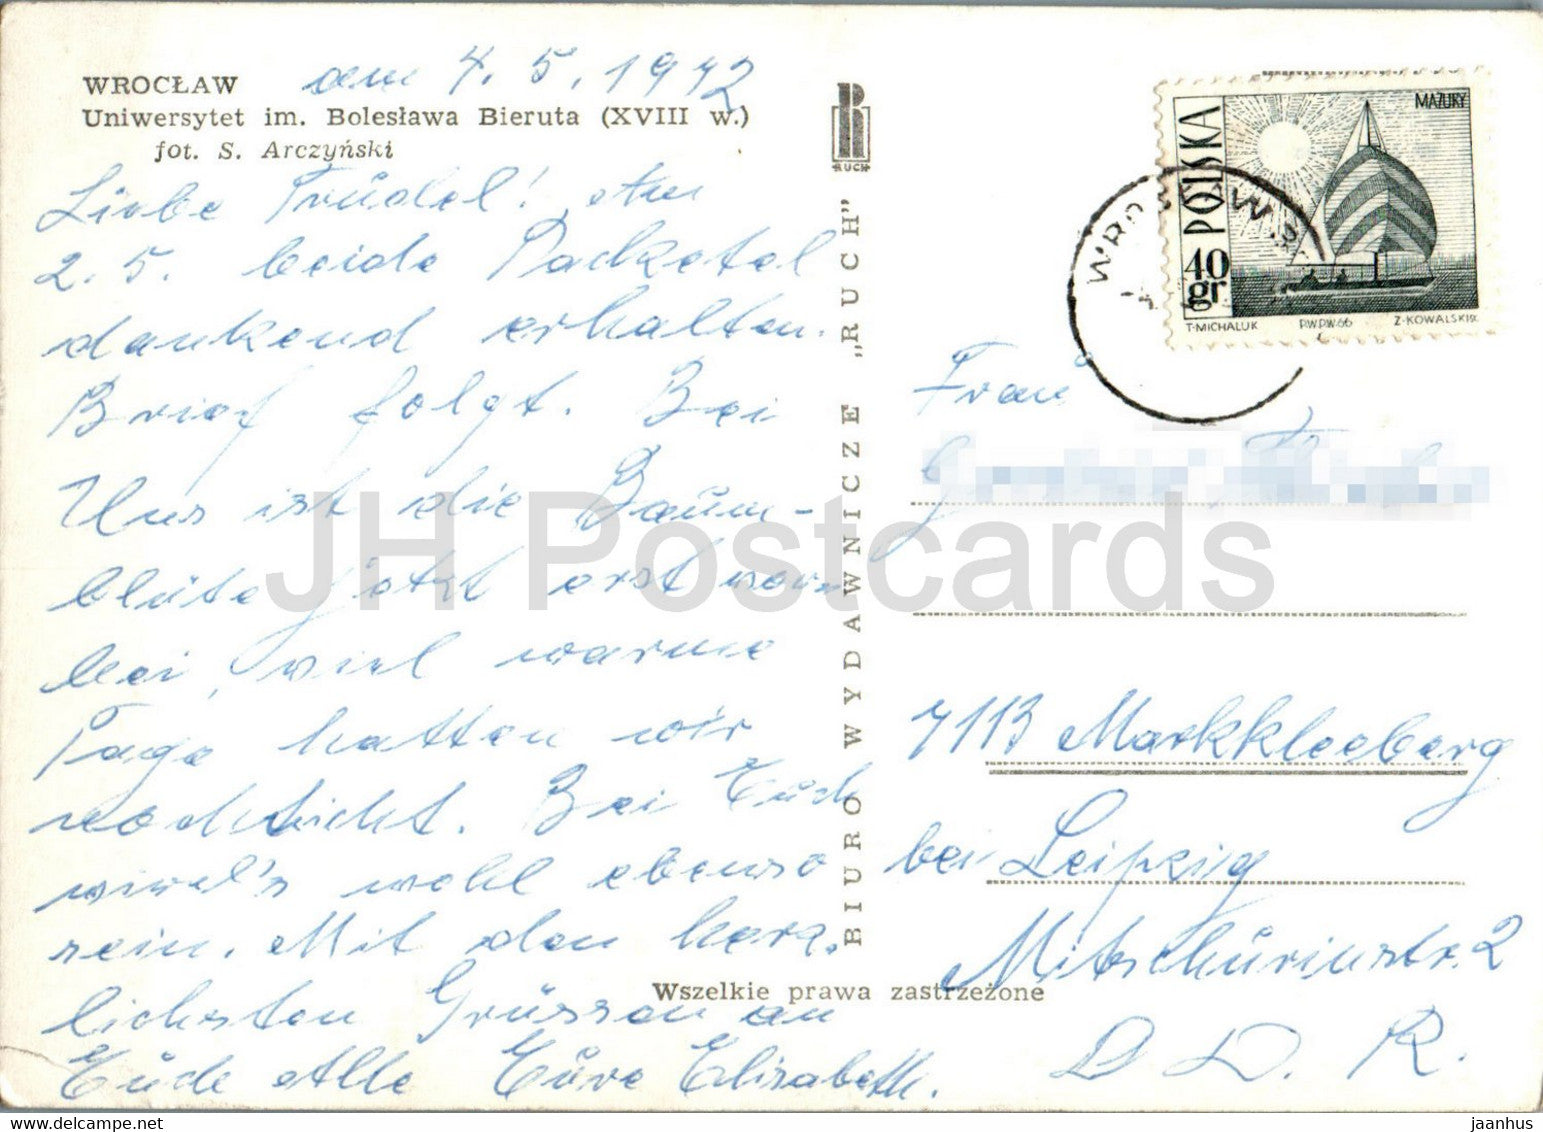 WROCŁAW
am 4. 5. 1972
Uniwersytet im. Bolesława Bieruta (XVIII w.)
fot. S. Arczyński
Liebe Trüdel! Am
2.5. beide Packetel
dankend erhalten.
Brief folgt. Bei
Uns ist die Baum-
blüte jetzt erst vor-
bei, viel warme
Tage hatten wir
noch nicht. Bei Euch
wird's wohl ebenso
sein. Mit den herz-
lichsten Grüssen an
Euch Alle Eure Elisabeth.
BIURO WYDAWNICZE „RUCH"
RUCH
Wszelkie prawa zastrzeżone
POLSKA
MAZURY
40
gr
T·MICHALUK P.W.P.W.·66 Z·KOWALSKI SC.
Frau
7113 Markkleeberg
bei Leipzig
Mitschurinstr. 2
D D. R.
JH Postcards
jaanhus @ delcampe.net